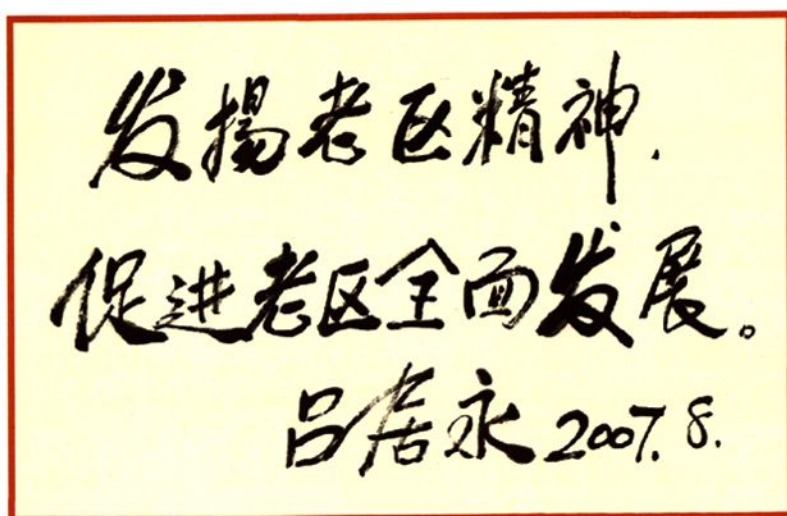 发揚老区精神.
促进老区全面发展。
吕居永 2007.8.